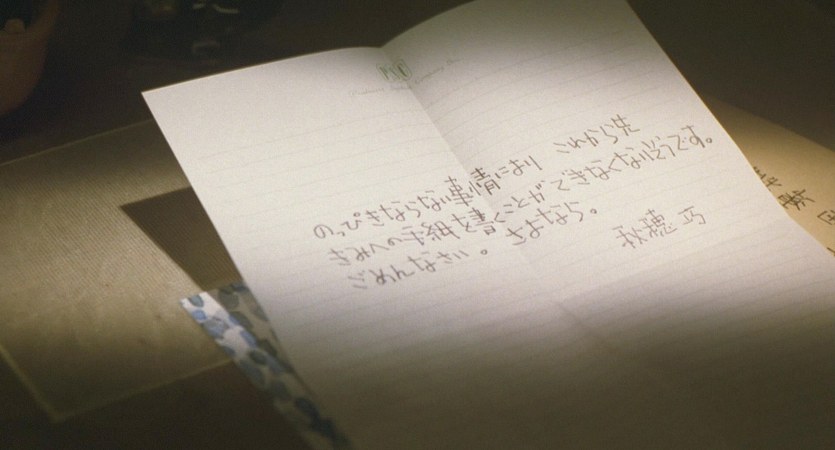 のっぴきならない事情により これから先
きみへの手紙を書くことができなくなりそうです。
ごめんなさい。さよなら。
秋穂 巧